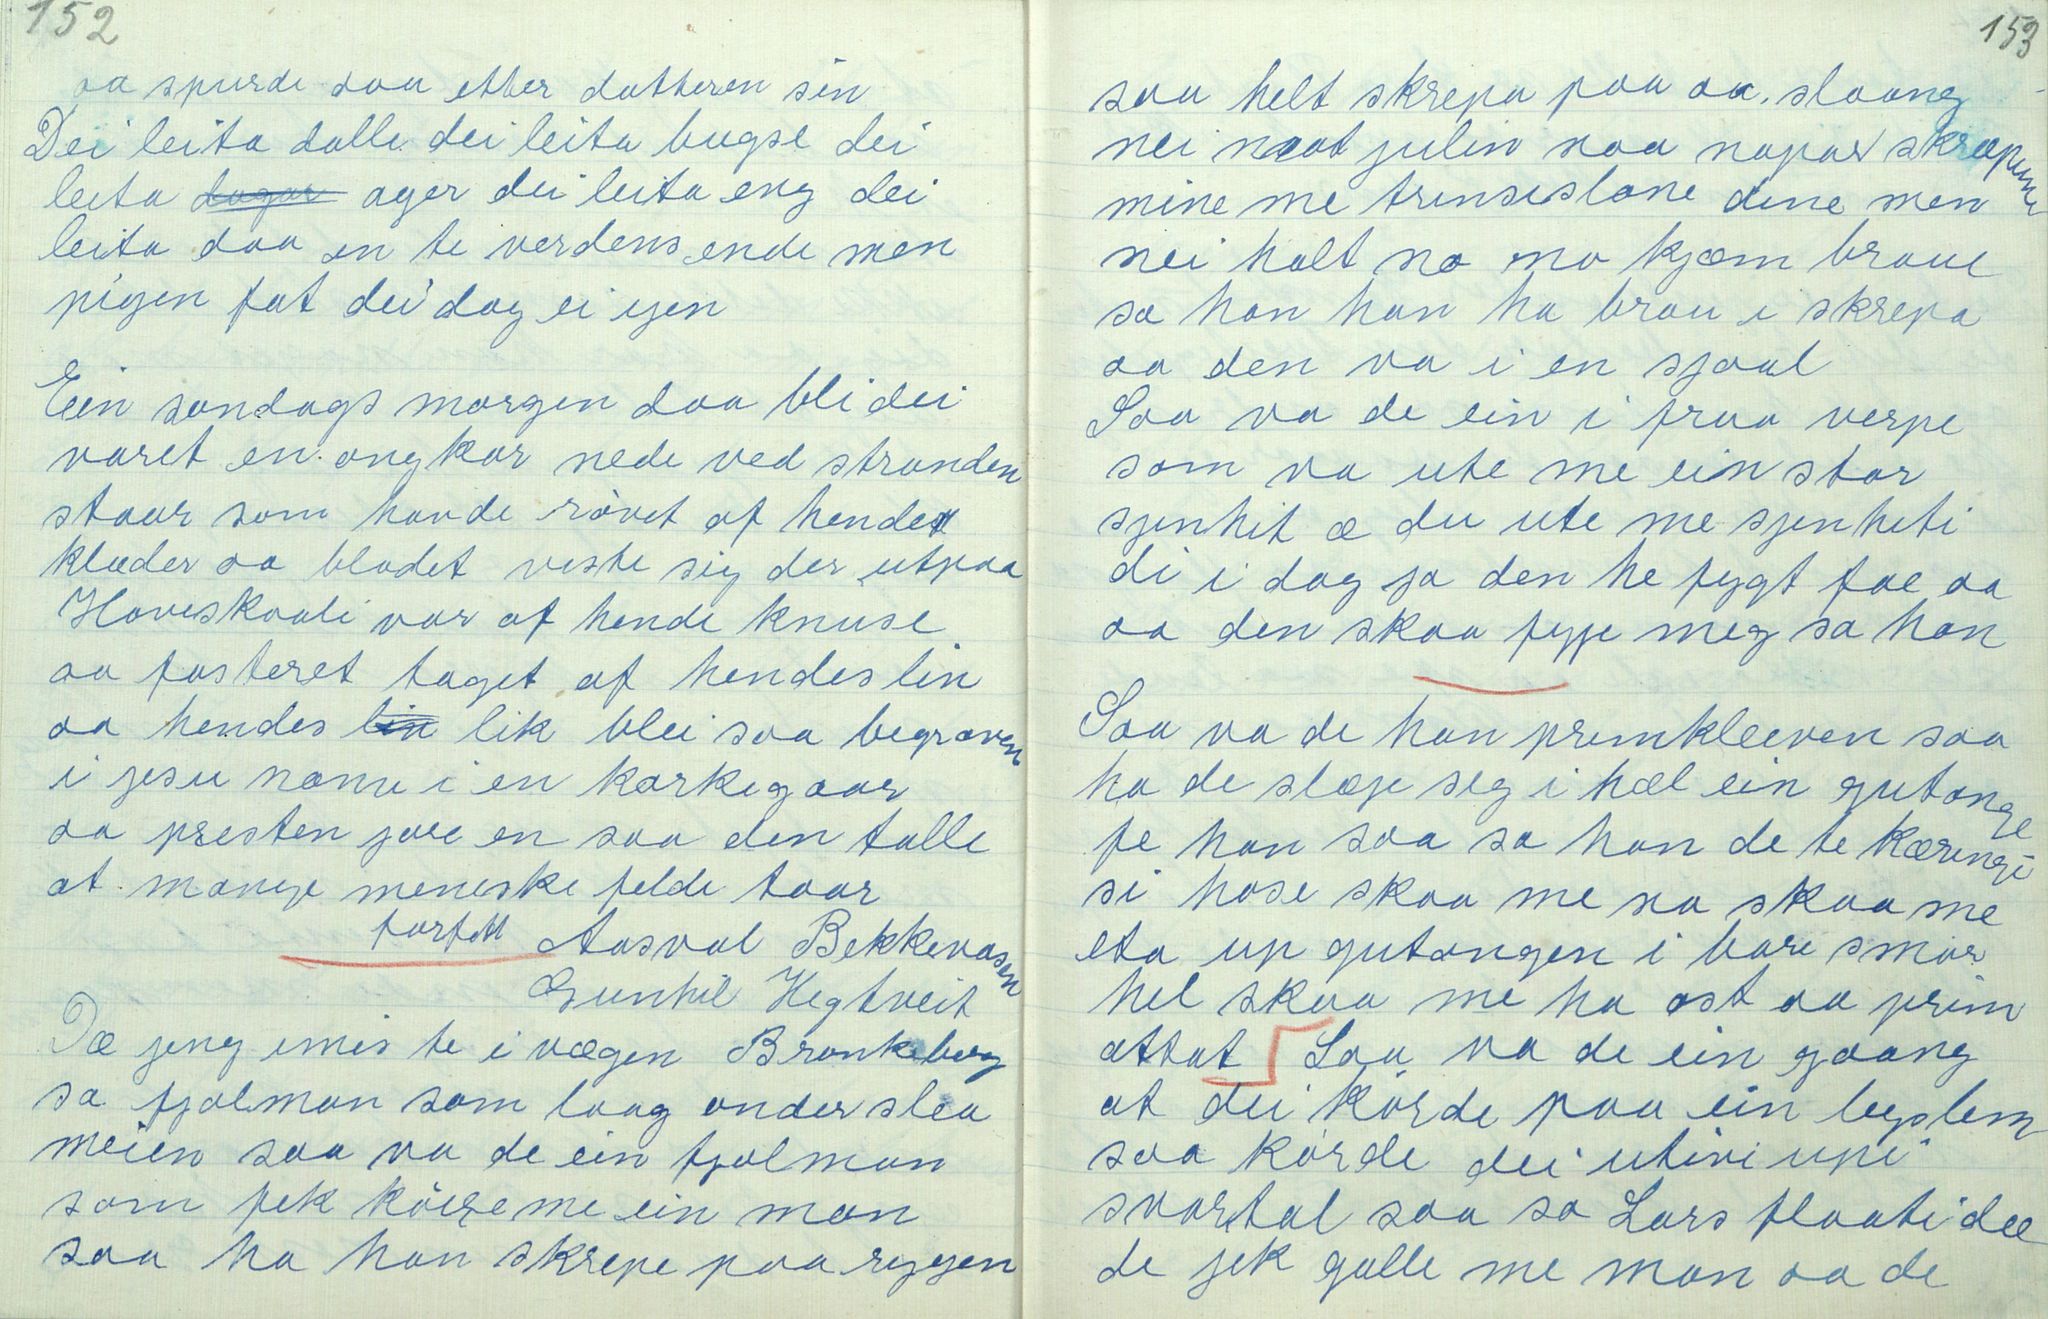 152
aa spurde daa etter datteren sin
Dei leita dalle dei leita bugse dei
leita dagar ager dei leita eng dei
leita daa en te verdens ende men
pigen fat dei dog ei igen
Ein søndags morgen daa bli dei
varet en ongkar nede ved stranden
staar som havde røvet af hende
klæder aa blodet viste sig der utpaa
Hoveskaali var af hende knuse
aa fosteret taget af hendes lin
aa hendes lin lik blei saa begraven
i jesu namn i en kørkegaar
aa presten jore en saa den talle
at mange meneske felde taar
forfatt Aasval Bekkevasen
Gunhil Hegtveit
Dæ jeng imis te i vægen Bronkeberg
sa fjolman som laag onder slea
meien saa va de ein fjolman
som fek køiere me ein man
saa ha han skrepe paa ryggen
153
saa helt skrepa paa aa slaang
nei naat julin naa napar skræpune
mine me trinsislane dine men
nei halt no no kjæm braue
sa han han ha brau i skrepa
aa den va i en sjaal
Saa va de ein i fraa verpe
som va ute me ein stor
sjenhit æ du ute me sjenheti
di i dag ja den he fygt foe aa
aa den skaa fyje meg sa han
Saa va de han primkleeven saa
ha de slæje seg i hæl ein gutonge
fe han saa sa han de te kæringi
si hose skaa me no skaa me
eta up gutongen i bare smør
hel skaa me ha ost aa prim
attat Saa va de ein gaang
at dei kørde paa ein leyslem
saa kørde dei utivi upi
svartal saa sa Lars flaati dee
de jek galle me man aa de